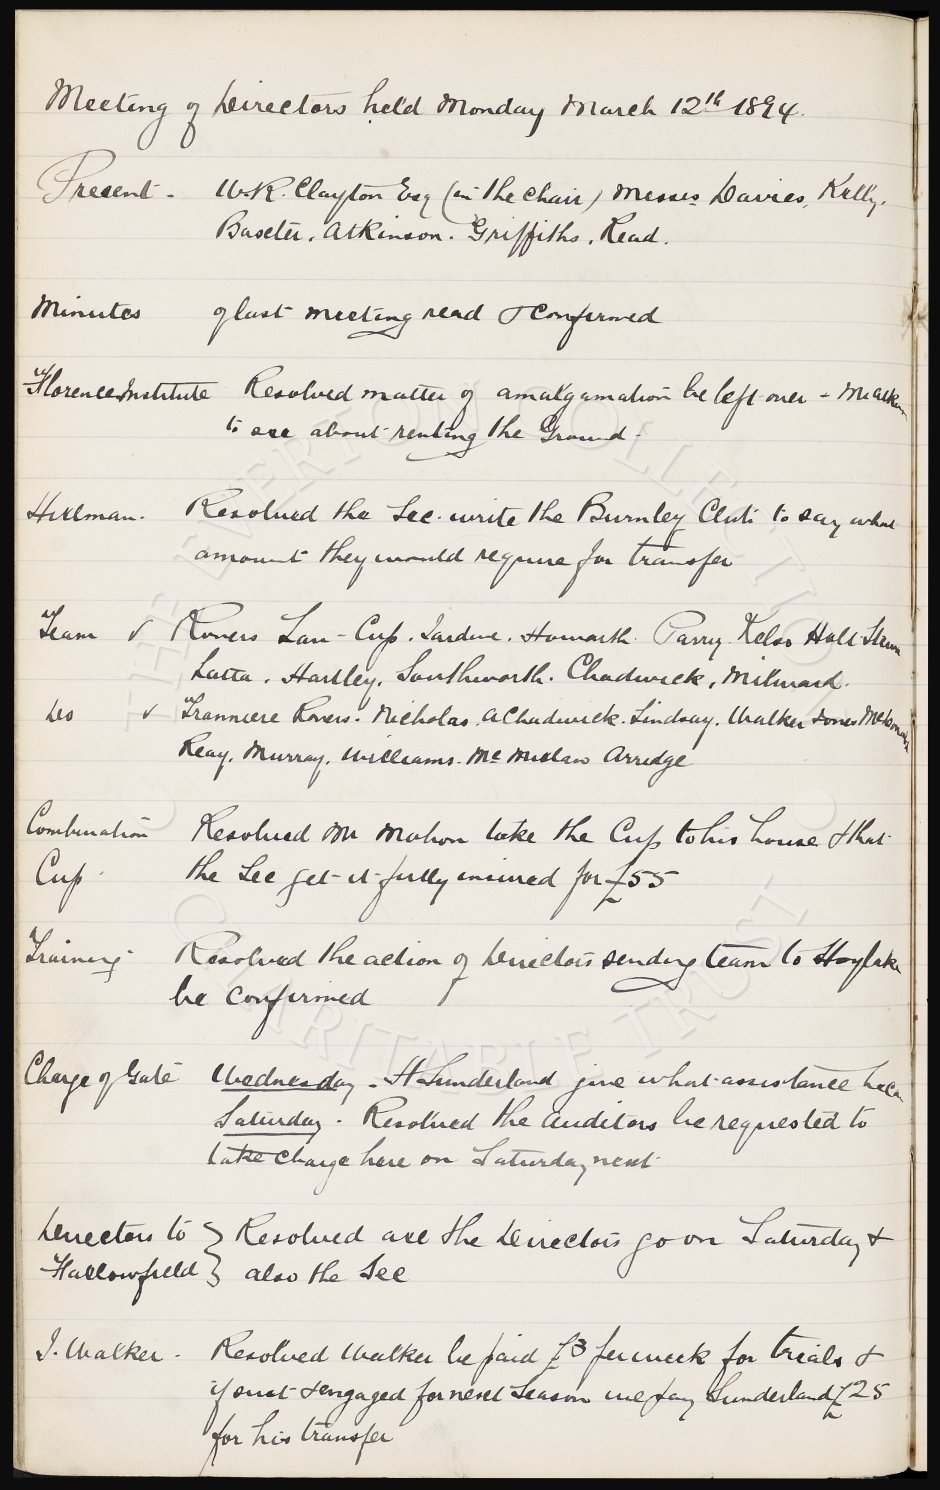 Meeting of Directors held Monday March 12th 1894.
Present - W.R. Clayton Esq (in the chair) Messrs Davies, Kelly,
Baxter, Atkinson. Griffiths, Read.
Minutes of last meeting read & confirmed
Florence Institute Resolved matter of amalgamation be left over -
to see about renting the Ground -
Hillman. Resolved the Sec. write the Burnley Club to say what
amount they would require for transfer
Team v Rovers Lan - Cup. Jardine. Howarth. Parry Kelso Holt
Latta, Hartley, Southworth. Chadwick, Milward.
Do v Tranmere Rovers. Nicholas, A Chadwick. Lindsay. Walker Jones
Reay, Murray, Williams. McMillan Arridge
Combination Resolved Mr Mahon take the Cup to his house & that
Cup. the Sec get it fully insured for £55
Training Resolved the action of Directors sending team to Hoylake
be confirmed
Charge of Gate Wednesday - H Sunderland give what assistance he can
Saturday - Resolved the Auditors be requested to
take charge here on Saturday next
Directors to } Resolved all the Directors go on Saturday &
Fallowfield } also the Sec
J. Walker - Resolved Walker be paid £3 per week for trials &
if suit & engaged for next season we pay Sunderland £25
for his transfer
THE EVERTON COLLECTION
CHARITABLE TRUST